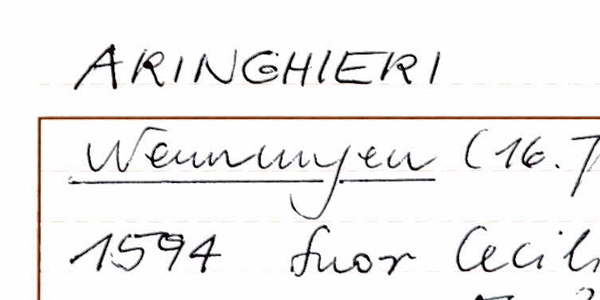 ARINGHIERI
Nennungen (16.
1594 suor Cecil